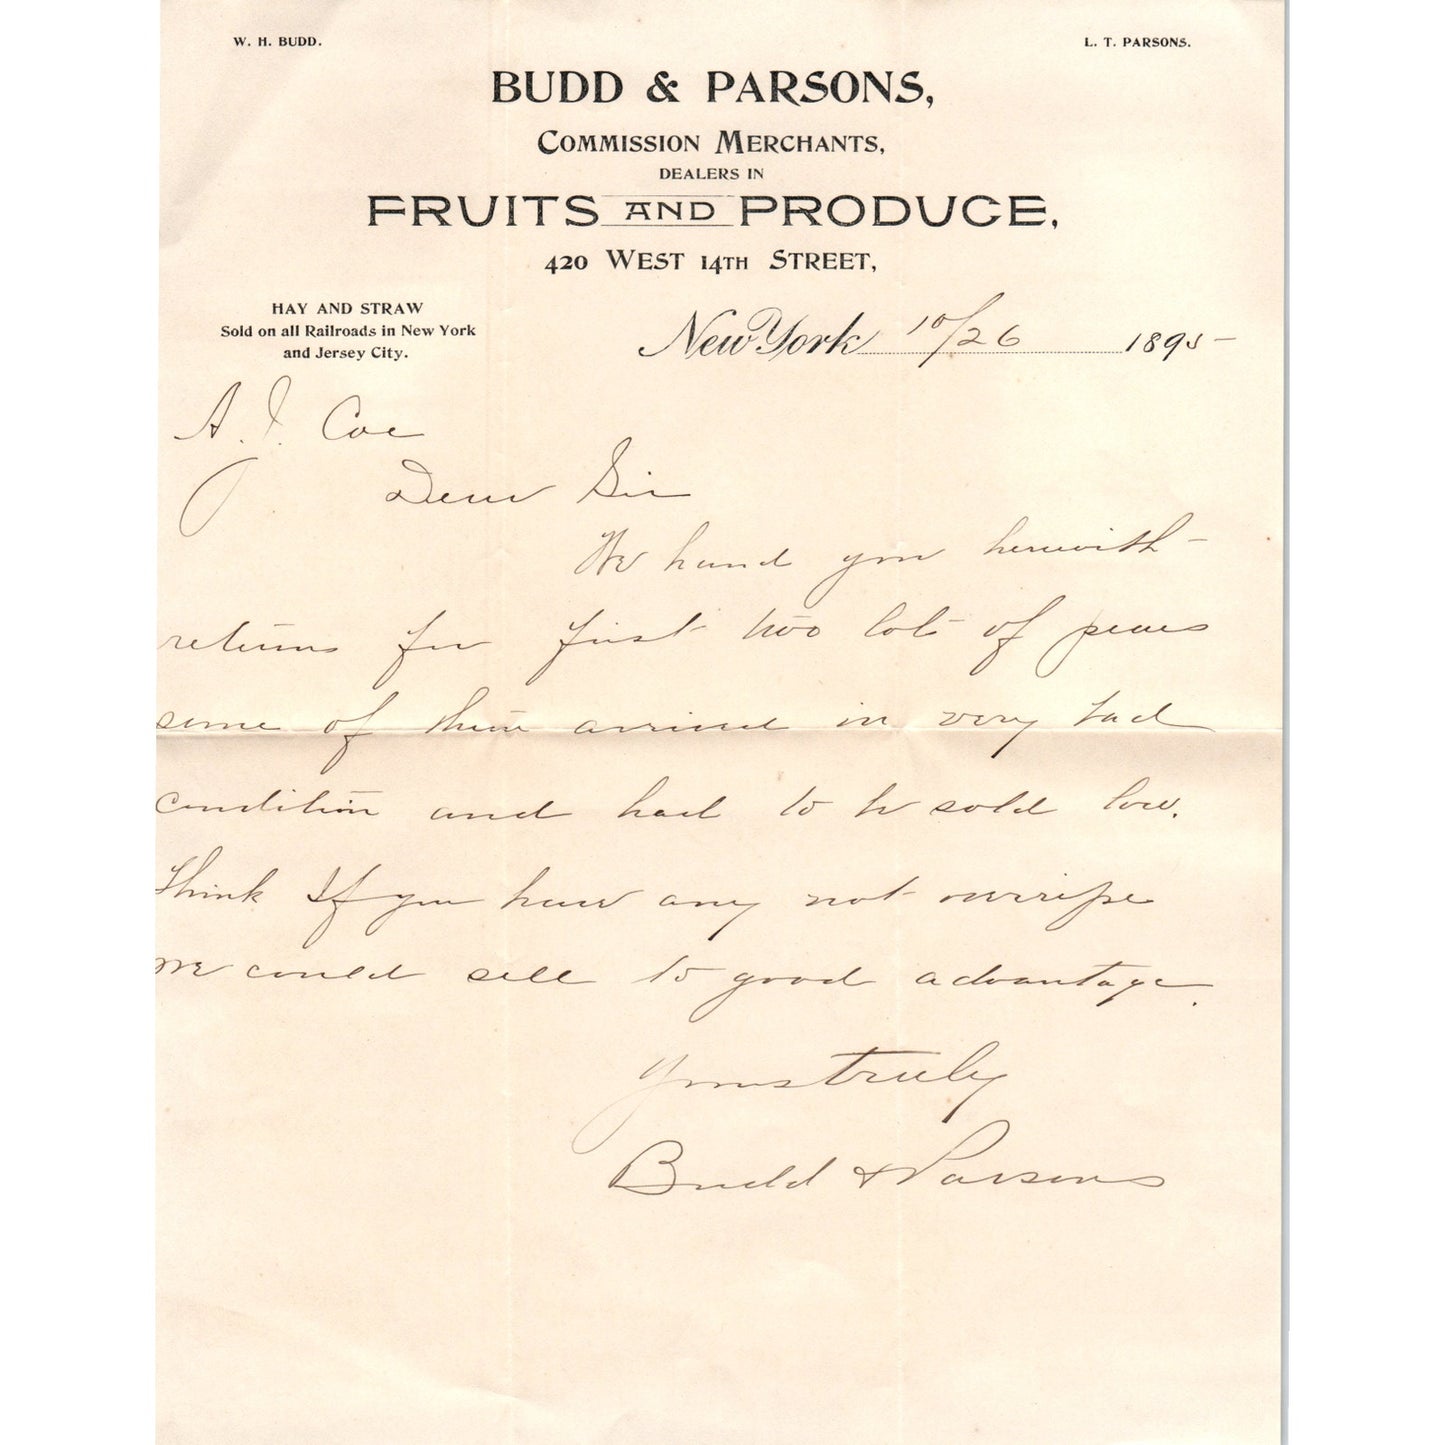 W. H. BUDD.
L. T. PARSONS.
BUDD & PARSONS,
COMMISSION MERCHANTS,
DEALERS IN
FRUITS AND PRODUCE,
420 WEST 14TH STREET,
HAY AND STRAW
Sold on all Railroads in New York
and Jersey City.
New York 10/26 1895
A. J. Coe
Dear Sir
We hand you herewith
returns for first two lots of pears
some of them arrived in very bad
condition and had to be sold low.
Think If you have any not overripe
we could sell to good advantage.
Yours truly
Budd & Parsons